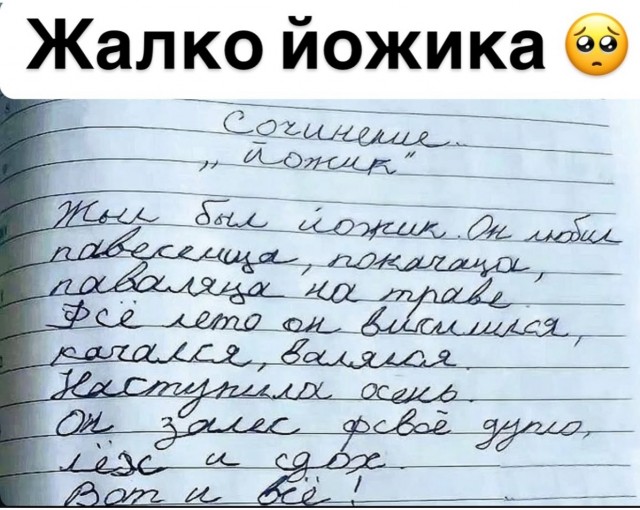 Жалко йожика
Сочинение.
„Йожик"
Жыл был йожик. Он любил
павесеица, покачаца,
паваляца на траве.
Фсё лето он висилился,
качался, валялся.
Наступила осень.
Он залес фсвоё дупло,
лёг и сдох.
Вот и всё!